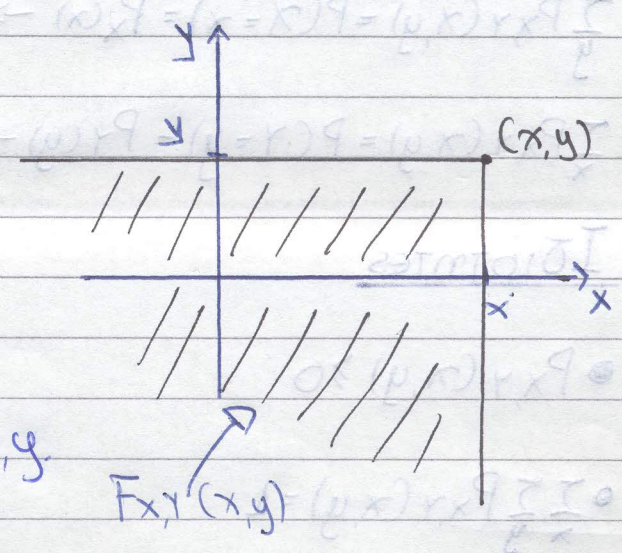 y
y
(x,y)
x
x
,y.
Fx,Y (x,y)